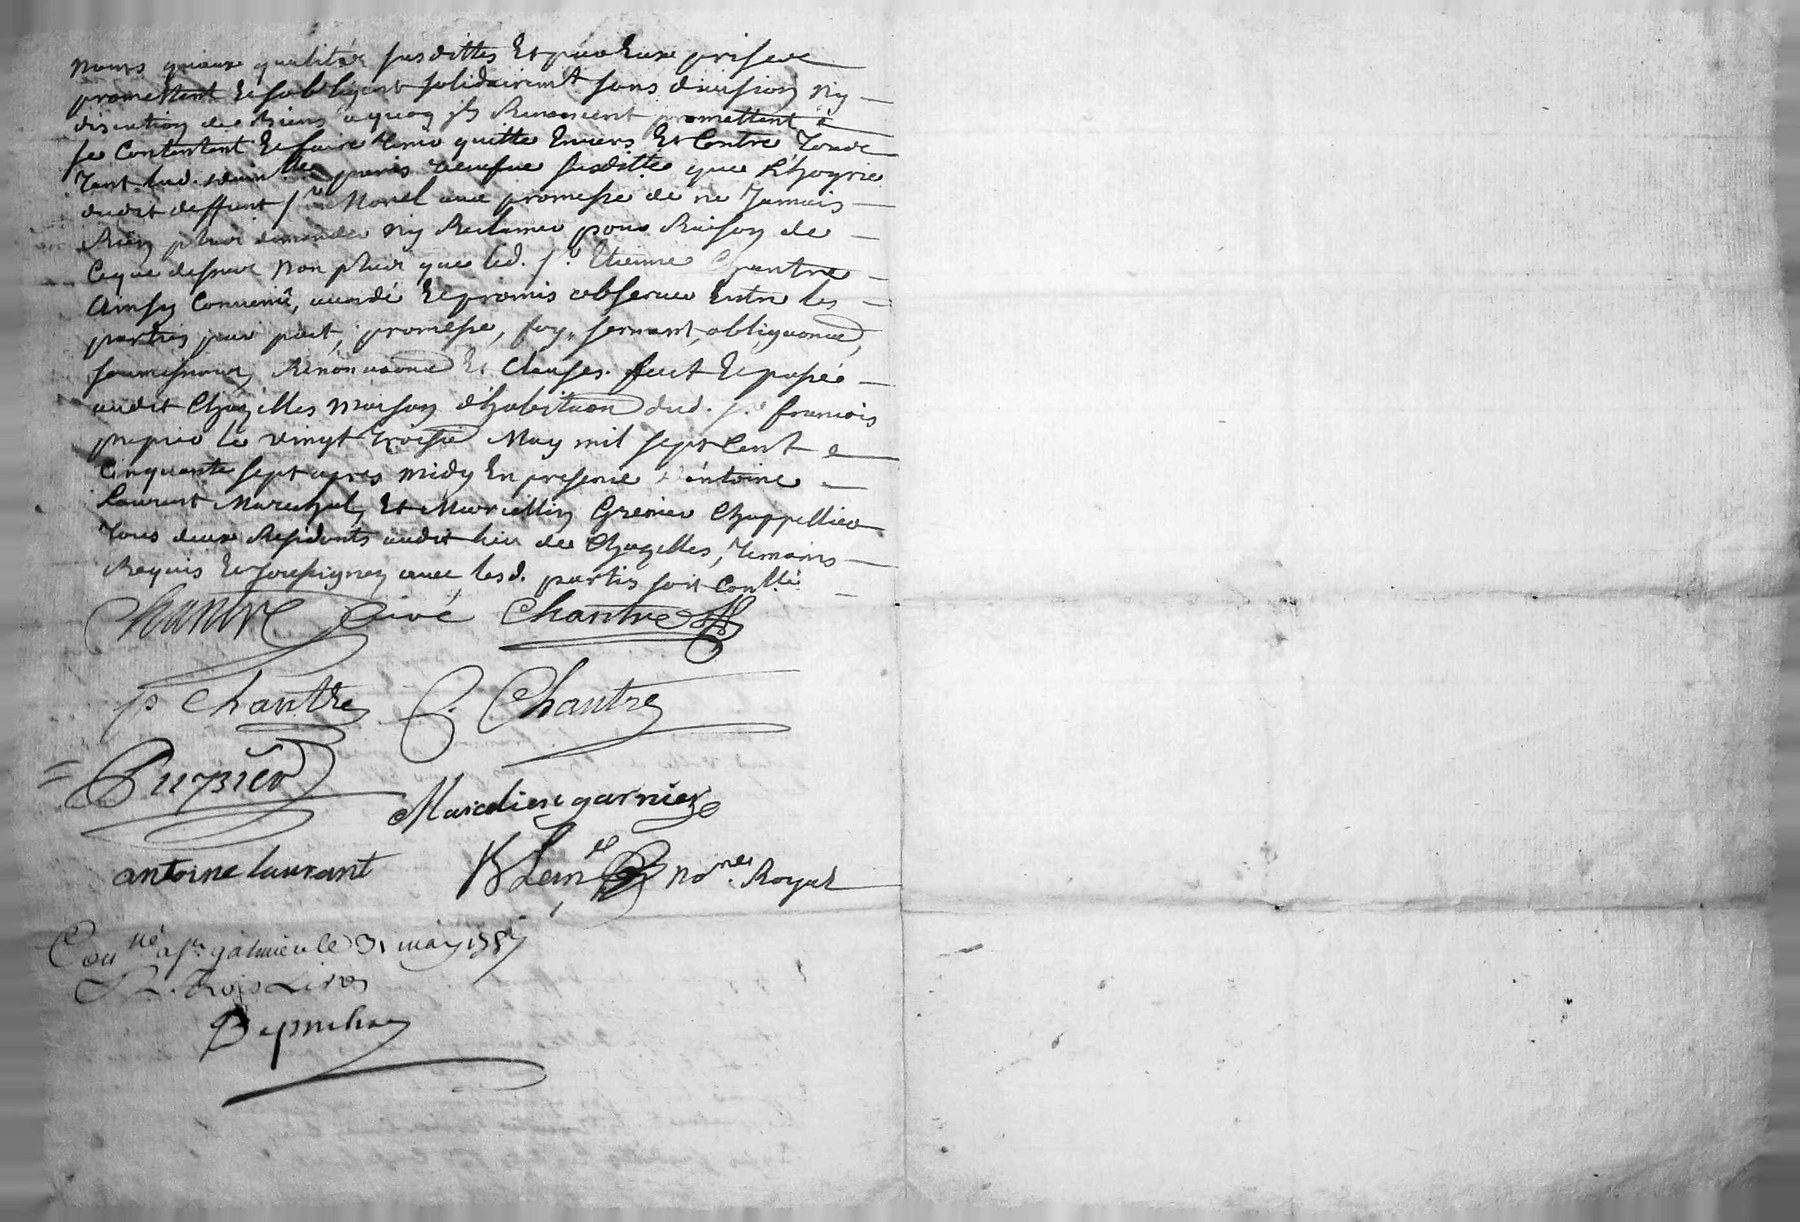 noms qu'aux qualités susdittes Et par Eux prisees
promettent Et sobligent solidairemt sans division ny
discution de biens a quoy ils Renoncent promettent
se Contentent Et faire tenir quitte Envers Et Contre Tous
Tant lad. demlle veufve susditte que L'hoyrie
dudit deffunt sr Morel avec promesse de ne Jamais
Rien plus demander ny Reclamer pour Raison de
Ceque dessus non plus que led. sr Etienne Chantre
Ainsy Convenu, accordé Et promis observer Entre les
parties par pact, promesse, foy, serment, obligaons,
soumissions, Rénonciaons Et Clauses. fait Et passé
audit Chazelles maison d'habitaon dud. sr francois
le vingt troise May mil sept Cent
Cinquante sept apres midy En presence d'antoine
Laurent Marechal, Et Marcellin Grenier Chappellier
Tous deux Residents audit lieu de Chazelles, Temoins
Requis Et soussignez avec lesd. parties soit Conllé
Chantre Curé Chantre
p Chantre C. Chantre
Marcelien garnier
antoine laurant nore Royal
Conllé a st galmier le 31 may 1757
R. Trois Livres